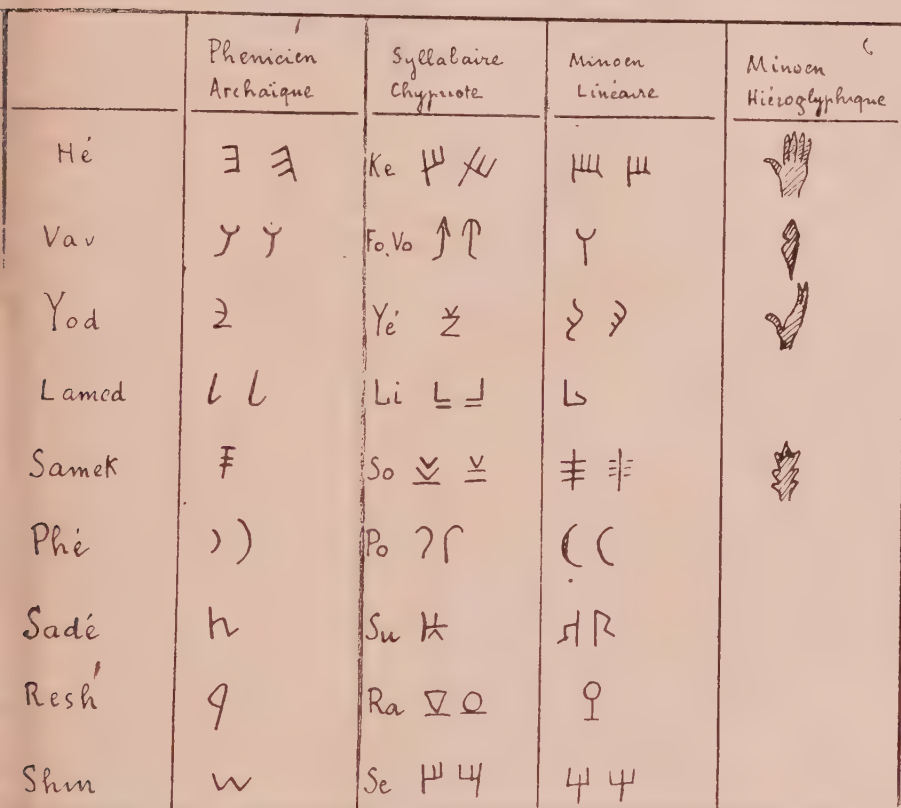 Phenicien Archaïque
Syllabaire Chypriote
Minoen Linéaire
Minoen Hiéroglyphique
Hé Ke
Vav Fo.Vo
Yod Yé
Lamed Li
Samek So
Phé Po
Sadé Su
Resh Ra
Shin Se